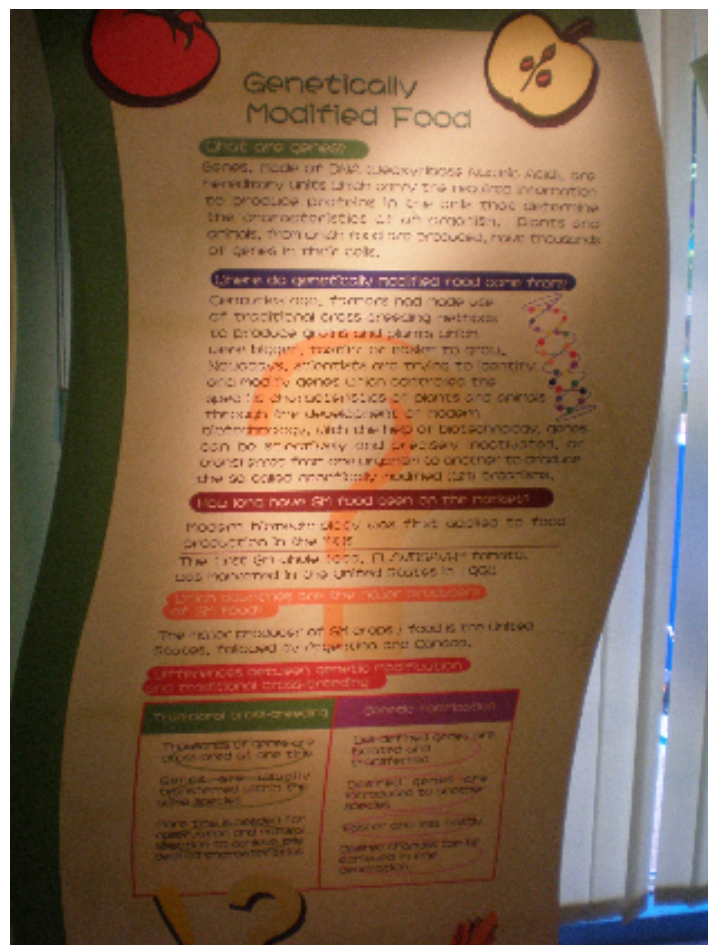 Genetically
Modified Food
What are genes?
Genes, made of DNA (Deoxyribose Nucleic Acid), are
hereditary units which carry the required information
to produce proteins in the cells that determine
the characteristics of an organism. Plants and
animals, from which food are produced, have thousands
of genes in their cells.
Where do genetically modified food come from?
Centuries ago, farmers had made use
of traditional cross-breeding methods
to produce grains and plants which
were bigger, tastier or easier to grow.
Nowadays, scientists are trying to identify
and modify genes which controlled the
specific characteristics of plants and animals
through the development of modern
biotechnology. With the help of biotechnology, genes
can be selectively and precisely inactivated, or
transferred from one organism to another to produce
the so called genetically modified (GM) organisms.
How long have GM food been on the market?
Modern biotechnology was first applied to food
production in the
The first GM whole food, FLAVRSAVR tomato,
was marketed in the United States in
Which countries are the major producers
of GM food?
The major producer of GM crops / food is the United
States, followed by Argentina and Canada.
Differences between genetic modification
and traditional cross-breeding
Traditional cross-breeding
Thousands of genes are
at one time
Genes are usually
transferred within the
same species
More time is needed for
observation and natural
selection to achieve the
desired characteristics
Genetic
Well-defined genes are
isolated and
transferred
Desired genes are
introduced to another
species
Faster and less costly
Desired changes can be
achieved in one
generation